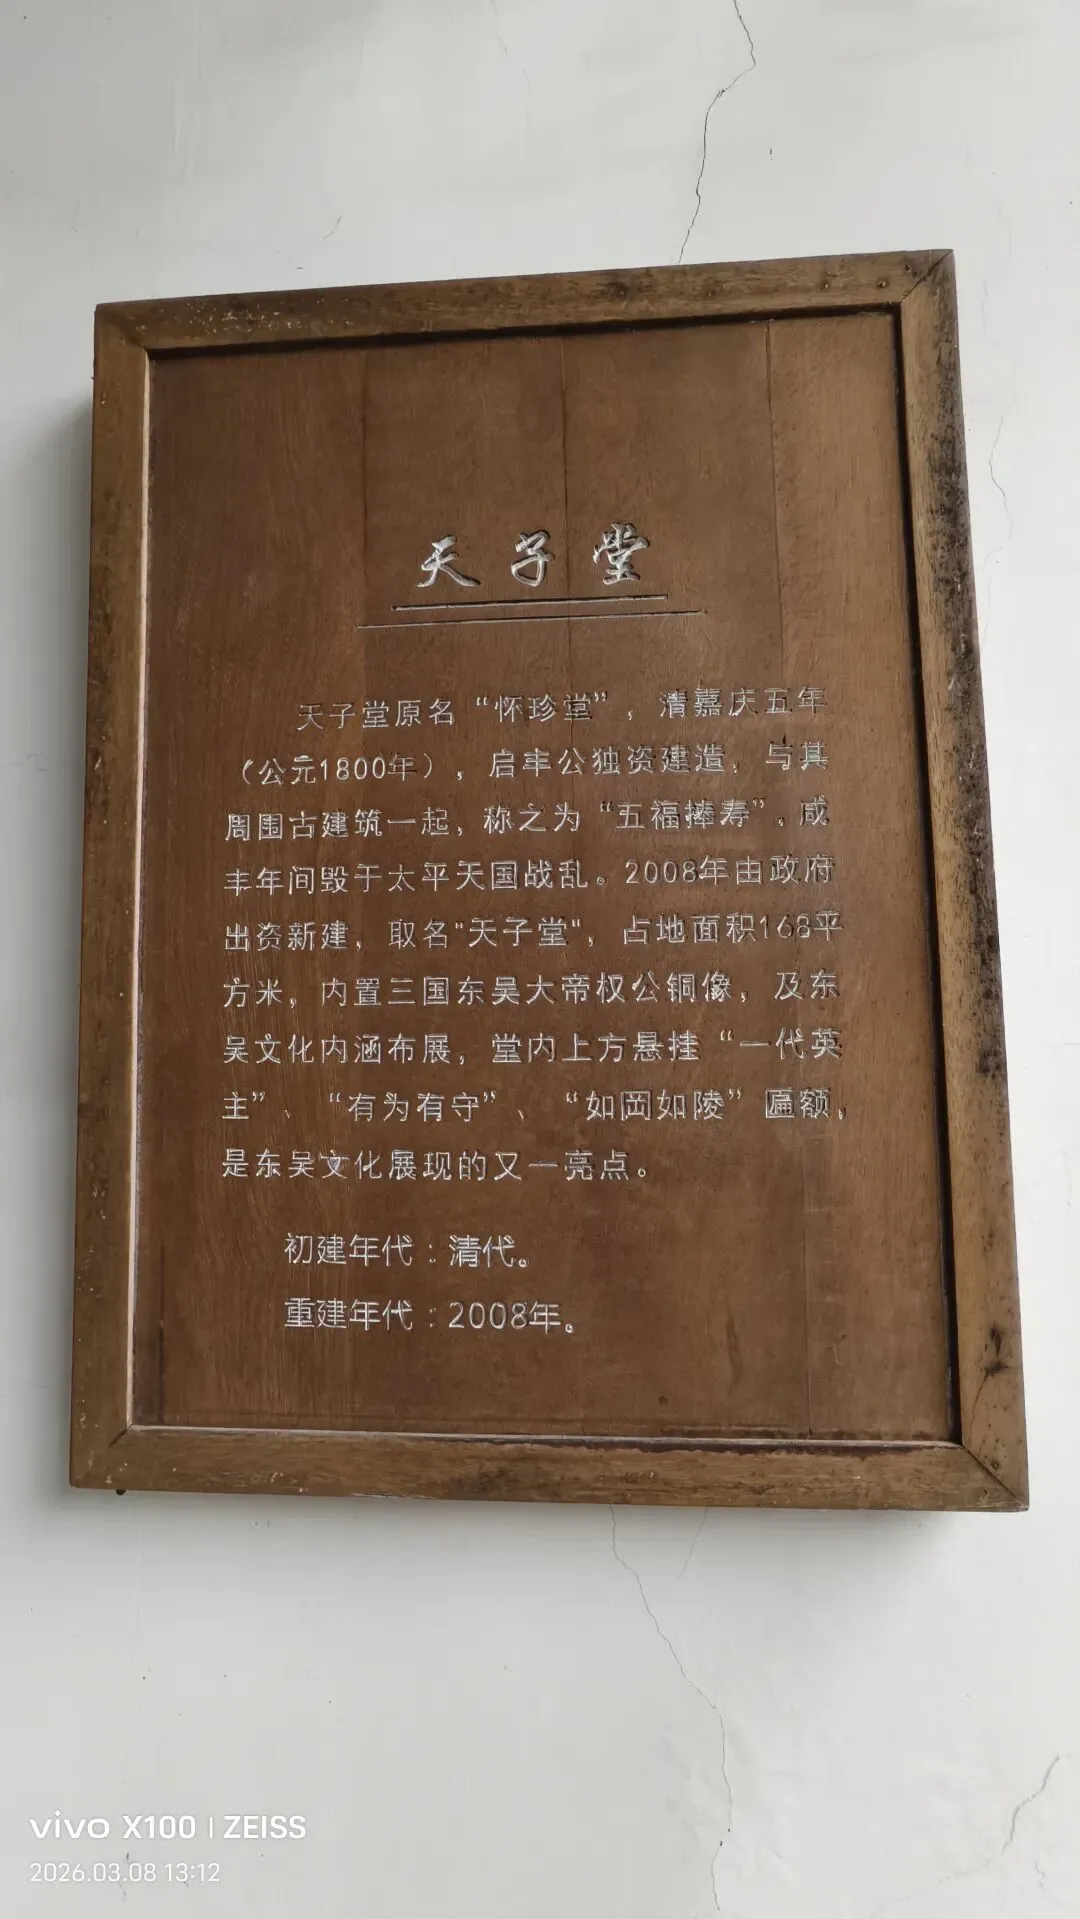 天子堂
天子堂原名“怀珍堂”，清嘉庆五年
（公元1800年），启丰公独资建造，与其
周围古建筑一起，称之为“五福捧寿”，咸
丰年间毁于太平天国战乱。2008年由政府
出资新建，取名"天子堂"，占地面积168平
方米，内置三国东吴大帝权公铜像，及东
吴文化内涵布展，堂内上方悬挂“一代英
主”、“有为有守”、“如冈如陵”匾额，
是东吴文化展现的又一亮点。
初建年代：清代。
重建年代：2008年。
vivo X100 | ZEISS
2026.03.08 13:12